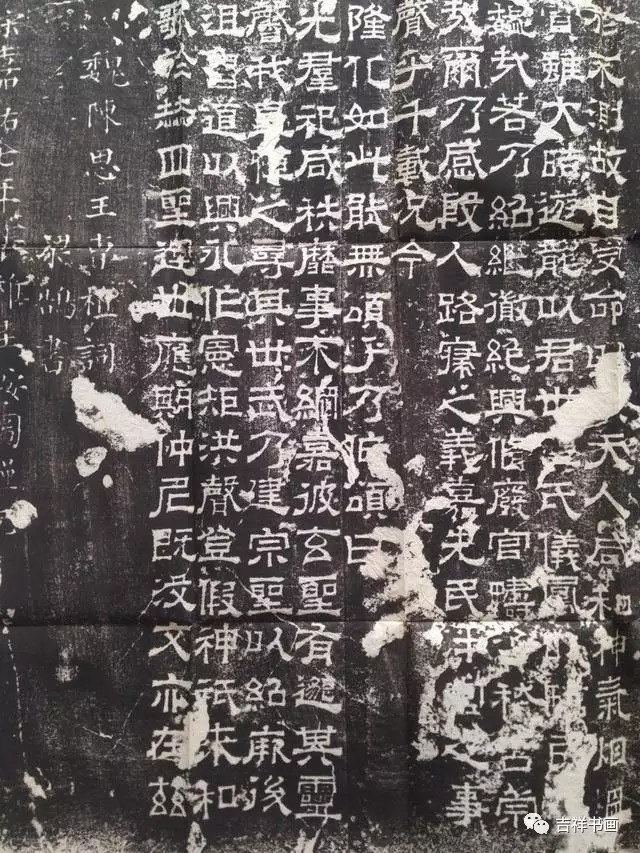 移不測故自受命以天人咸和神氣烟熅
官雖大皓遊龍以君世氏儀鳳
魏哉若乃紹繼徽絕興脩廢官疇咨稽古崇
哉爾乃感殷人路寢之義嘉先民泮宮之事
聲乎千載況今
隆化如此能無頌乎乃作頌曰
光羣祀咸秩靡事不綱嘉彼玄聖有邈其靈
聲我皇悼之尋其世武乃建宗聖以紹厥後
徂習道以興永作憲矩洪聲登假神祇來和
歌於赫四聖運世應期仲尼既沒文亦在茲
魏陳思王曹植詞
梁鵠書
宋嘉祐七年張稚圭按圖謹
吉祥书画